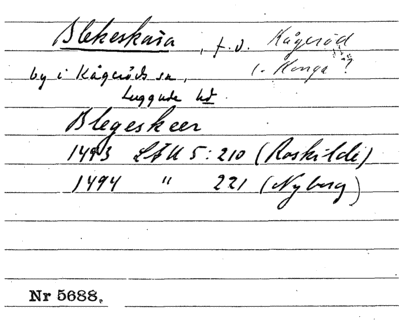 Blekeskåra, f. d. Kågeröd
by i Kågeröds sn, l. Konga?
Luggude hd
Blegeskeer
1493 LÅU 5:210 (Roskilde)
1494 " 221 (Nyborg)
Nr 5688.